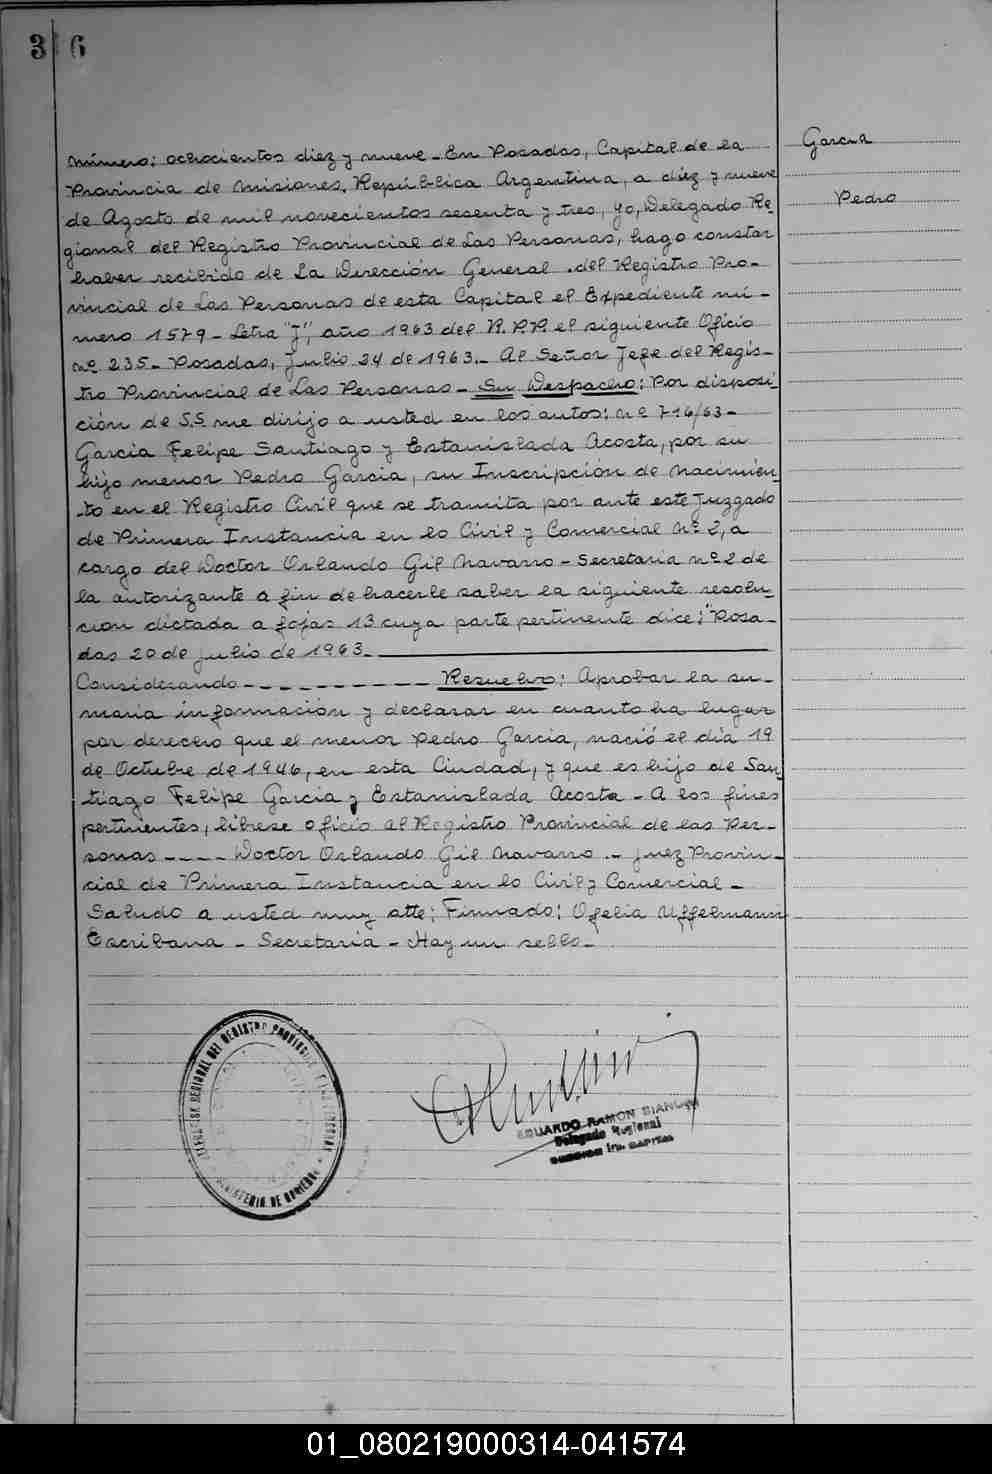 3 6
Garcia
Pedro
número: ochocientos diez y nueve - En Posadas, Capital de la
Provincia de Misiones, República Argentina, a diez y nueve
de Agosto de mil novecientos sesenta y tres, yo, Delegado Re-
gional del Registro Provincial de Las Personas, hago constar
haber recibido de La Dirección General del Registro Pro-
vincial de Las Personas de esta Capital el Expediente nú-
mero 1579 - Letra "J", año 1963 del R. P. P. el siguiente Oficio
nº 235 - Posadas, Julio 24 de 1963. - Al Señor Jefe del Regis-
tro Provincial de Las Personas - Su Despacho: Por disposi-
ción de S.S. me dirijo a usted en los autos: nº 716/63 -
Garcia Felipe Santiago y Estanislada Acosta, por su
hijo menor Pedro Garcia, su Inscripción de nacimien-
to en el Registro Civil que se tramita por ante este Juzgado
de Primera Instancia en lo Civil y Comercial Nº 2, a
cargo del Doctor Orlando Gil Navarro - Secretaria nº 2 de
la autorizante a fin de hacerle saber la siguiente resolu-
cion dictada a fojas 13 cuya parte pertinente dice: "Posa-
das 20 de julio de 1963.
Considerando - - - - - - - - - - Resuelvo: Aprobar la su-
maria información y declarar en cuanto ha lugar
por derecho que el menor Pedro Garcia, nació el día 19
de Octubre de 1946, en esta Ciudad, y que es hijo de San-
tiago Felipe Garcia y Estanislada Acosta - A los fines
pertinentes, líbrese oficio al Registro Provincial de las Per-
sonas - - - - Doctor Orlando Gil Navarro. - Juez Provin-
cial de Primera Instancia en lo Civil y Comercial -
Saludo a usted muy atte: Firmado: Ofelia Uffelmann
Escribana - Secretaria - Hay un sello -
REGIONAL DEL REGISTRO PROVINCIAL DE LAS PERSONAS
MINISTERIO DE GOBIERNO
EDUARDO RAMON BIANCHI
Delegado Regional
01_080219000314-041574